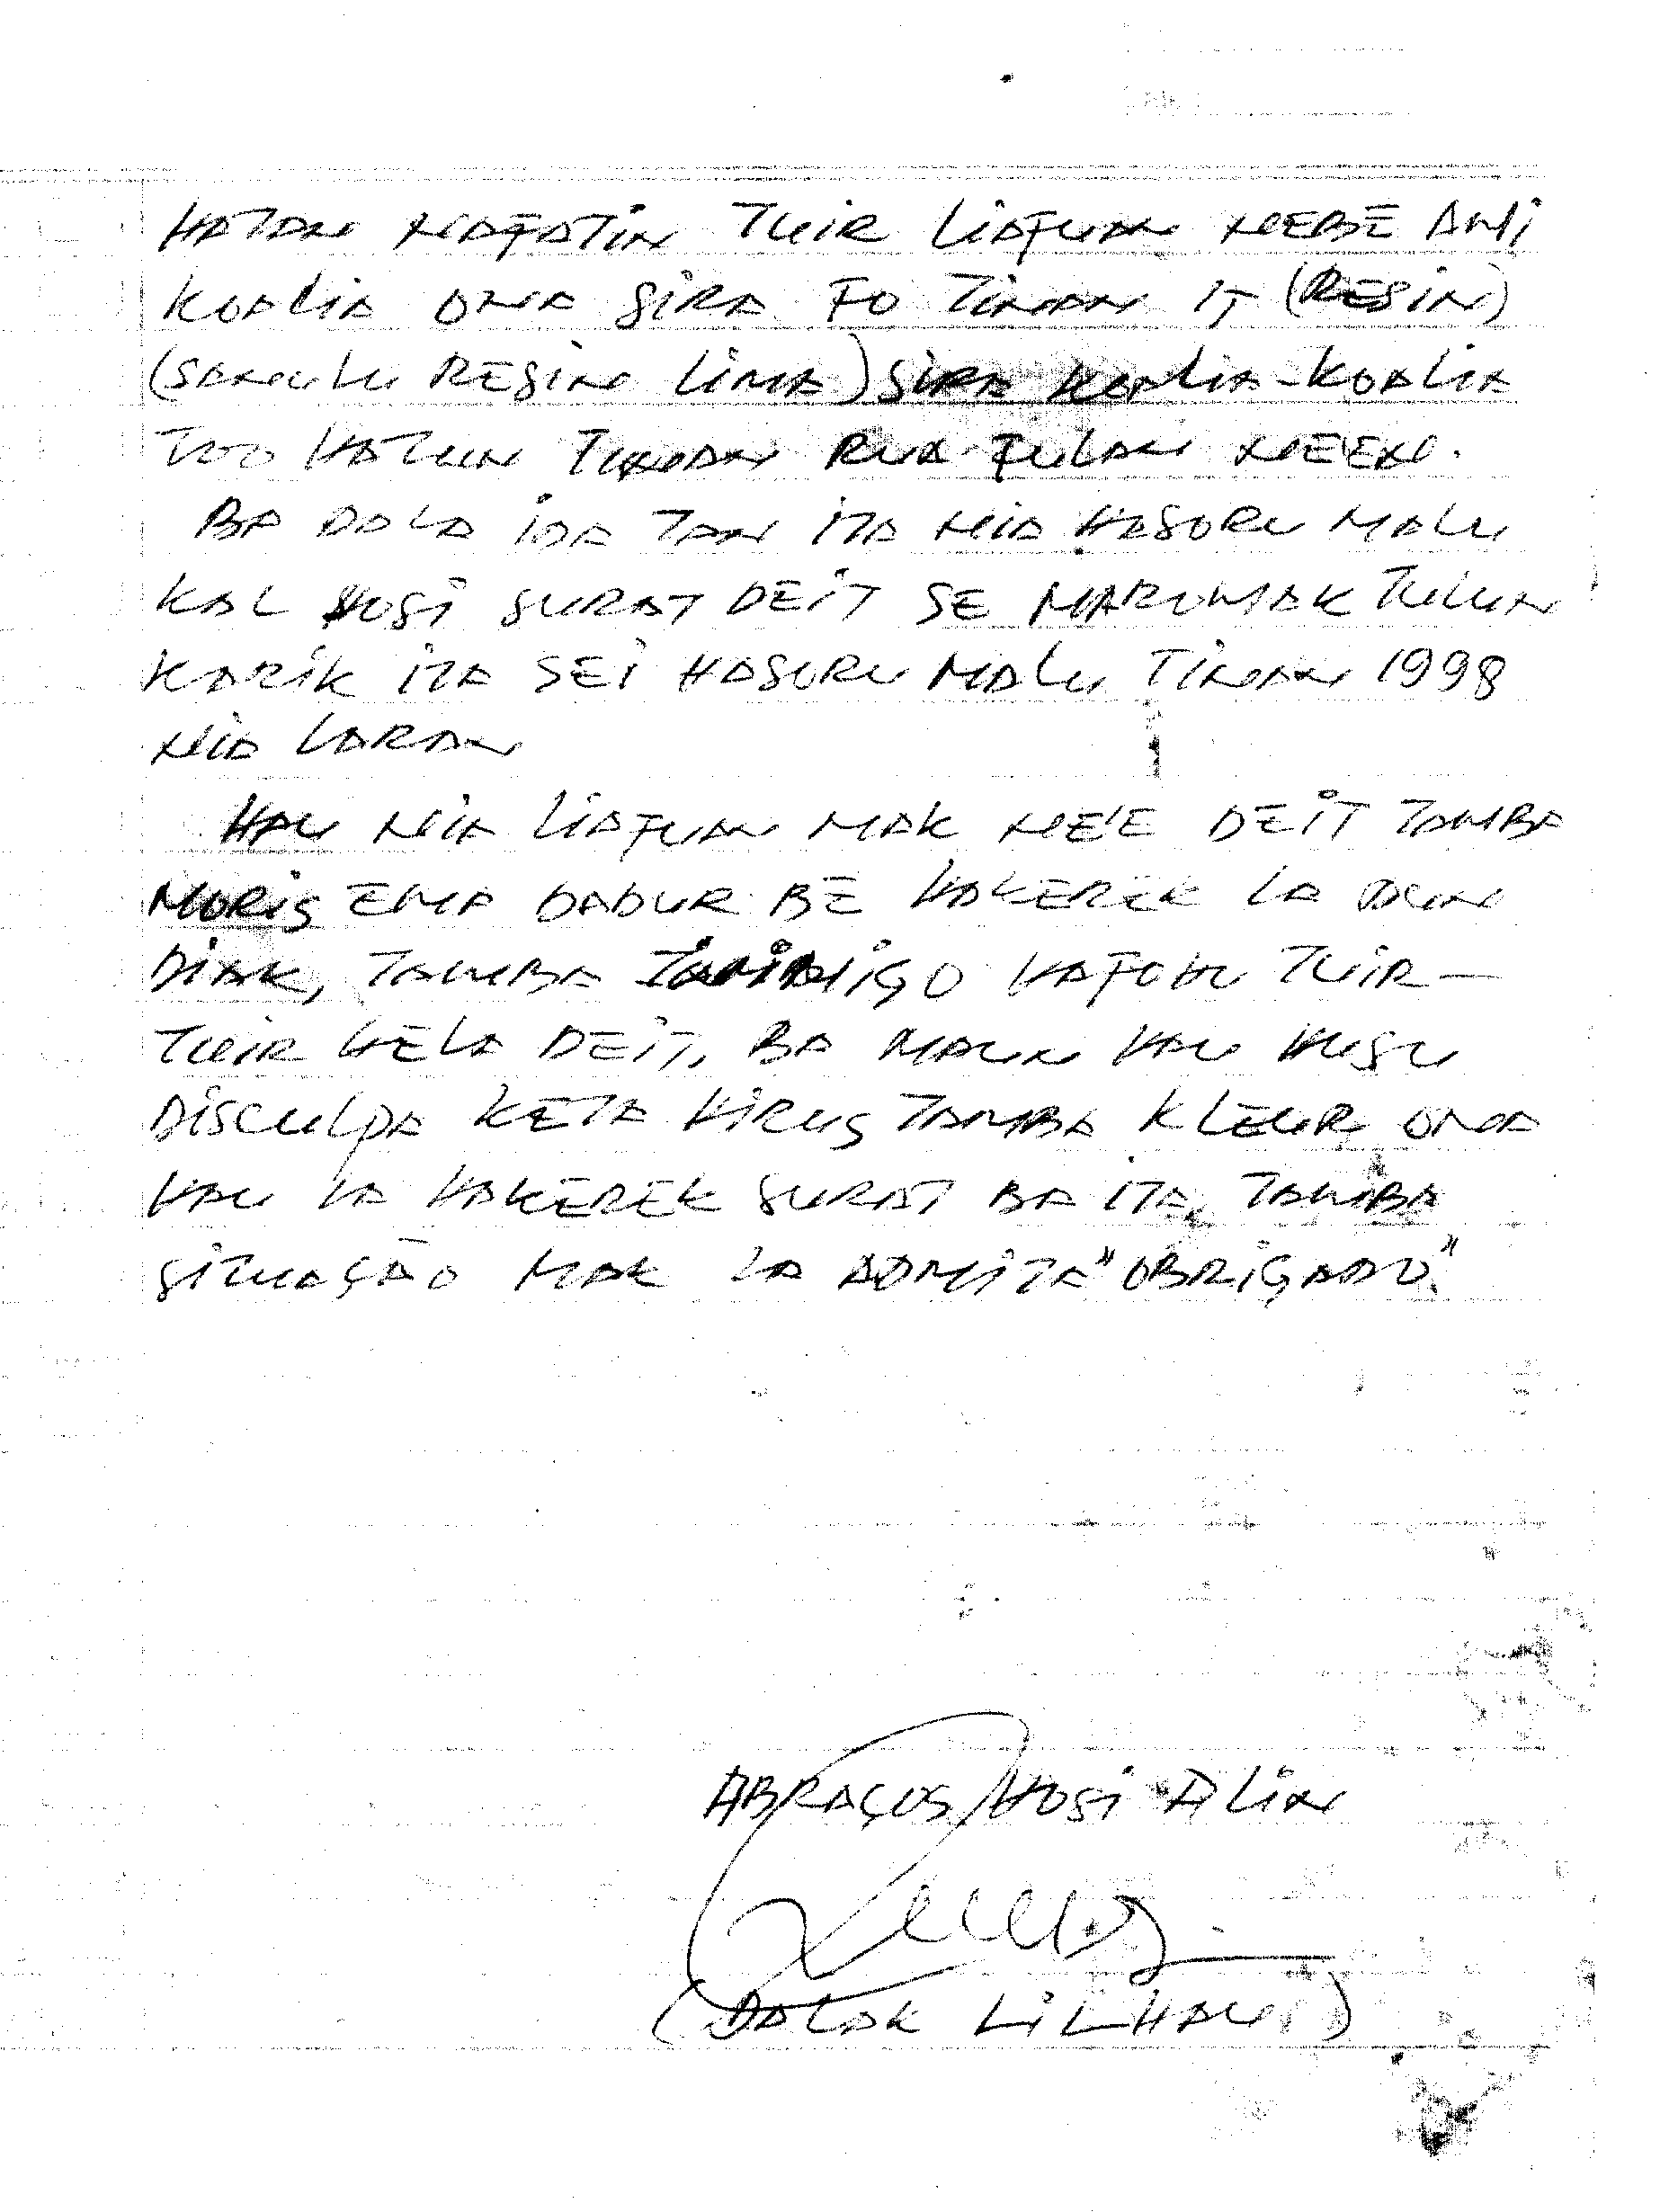 HATAN NAFATIN TUIR LIAFUAN NEBÉ AMI
KOALIA ONA SIRA FO TINAN 15 (RESIN)
(SANULU RESIN LIMA) SIRA KOALIA-KOALIA
TOO HATUN TINAN RUA FULAN NEEN.
BA DALA IDA TAN ITA NIA HASORU MALU
KAL HOSI SURAT DEIT SE MAROMAK TULUN
KARIK ITA SEI HASORU MALU TINAN 1998
NIA LARAN
HAU NIA LIAFUAN MAK NE'E DEIT TAMBA
MORIS EMA DADUR BÉ HAKEREK LA DUN
DIAK, TAMBA INIMIGO HAFOHU TUIR-
TUIR HELA DEIT, BA MAUN HAU HUSU
DISCULPA KETA HIRUS TAMBA KLEUR ONA
HAU LA HAKEREK SURAT BA ITA, TAMBA
SITUAÇÃO MAK LA ADMITE "OBRIGADO."
ABRAÇOS HOSI ALIN
(DALAK LILHAU)